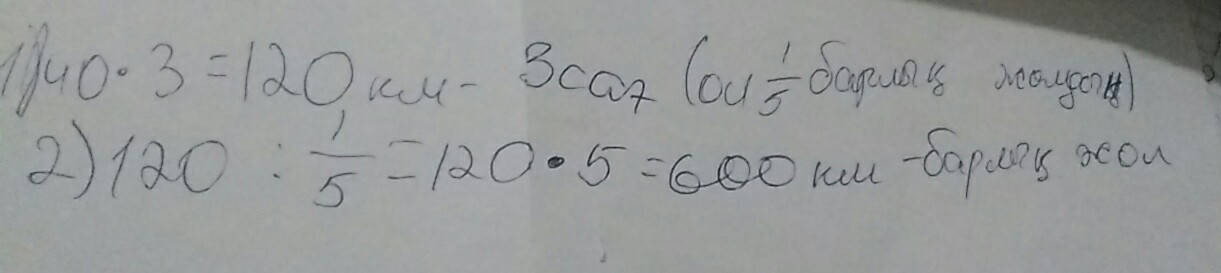 1) 40 · 3 = 120 км - 3 сағ (ол 1/5 барлық жолдың)
2) 120 : 1/5 = 120 · 5 = 600 км - барлық жол